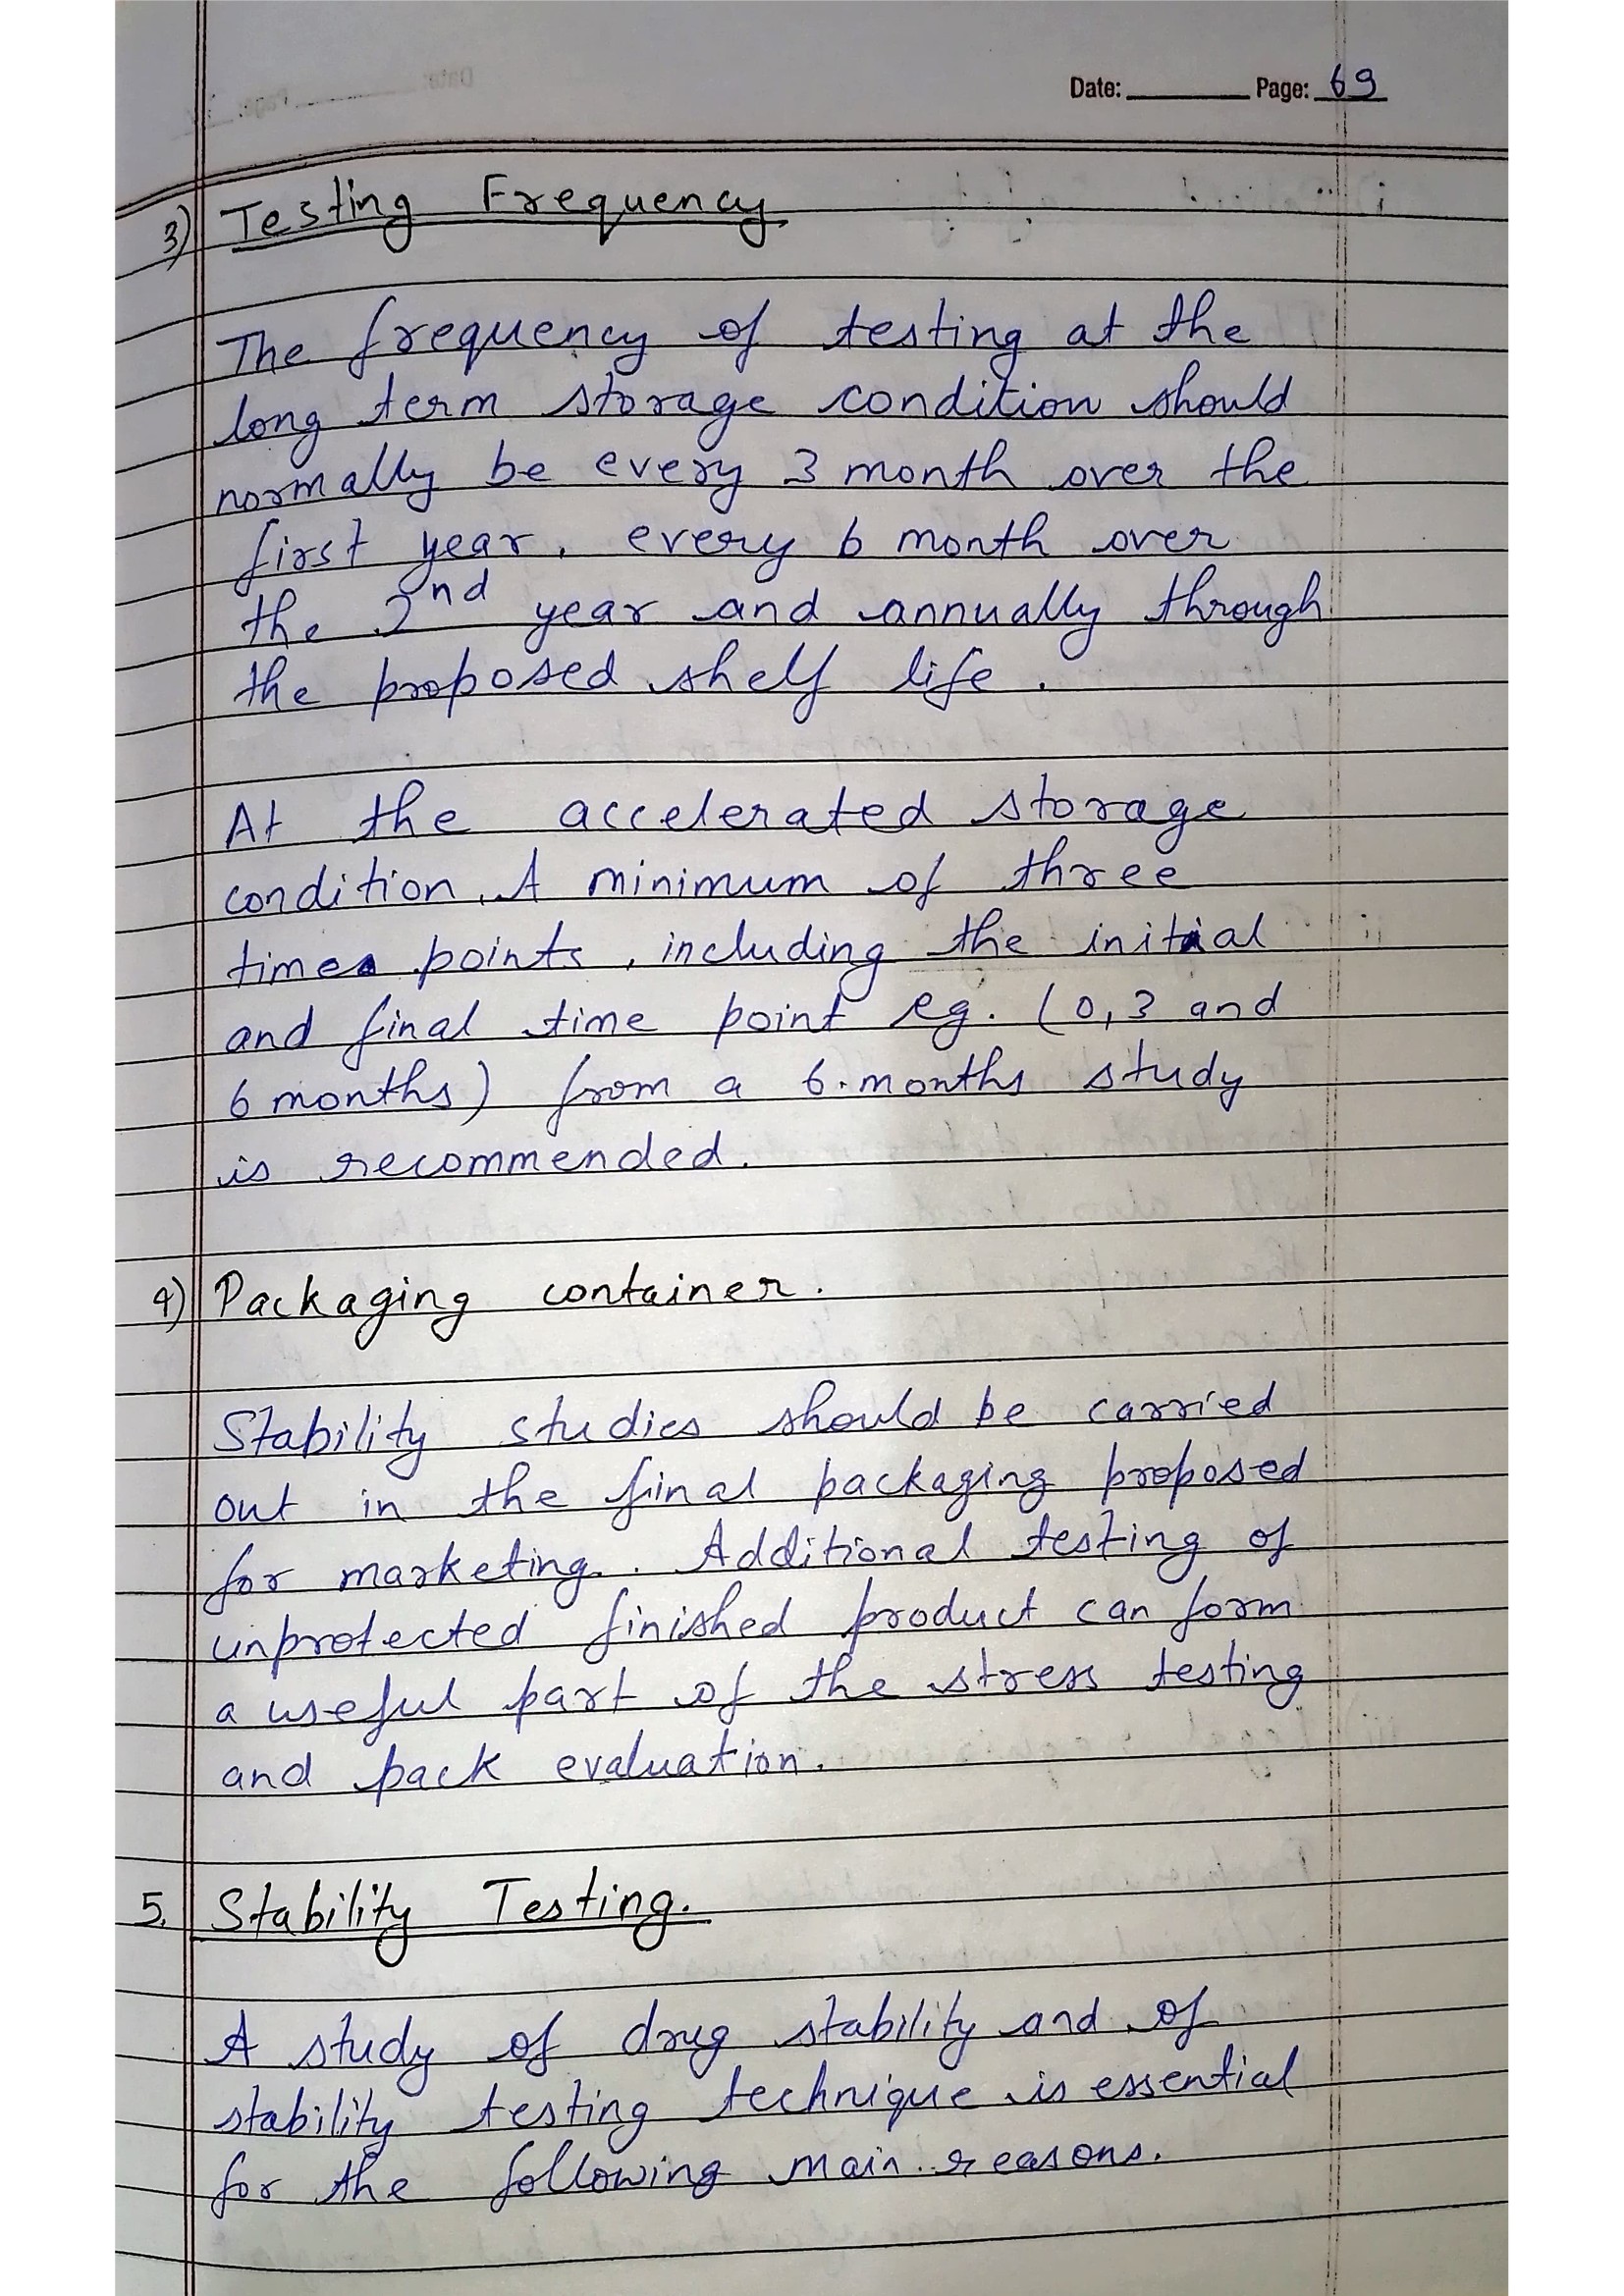 Date: Page: 69
3) Testing Frequency.
The frequency of testing at the
long term storage condition should
normally be every 3 month over the
first year, every 6 month over
the 2nd year and annually through
the proposed shelf life.
At the accelerated storage
condition, A minimum of three
times points, including the initial
and final time point eg. (0,3 and
6 months) from a 6.months study
is recommended.
4) Packaging container.
Stability studies should be carried
out in the final packaging proposed
for marketing. Additional testing of
unprotected finished product can form
a useful part of the stress testing
and pack evaluation.
5. Stability Testing.
A study of drug stability and of
stability testing technique is essential
for the following main reasons.